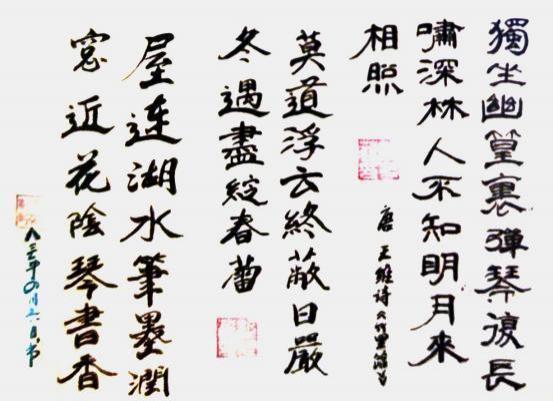 獨坐幽篁裏彈琴復長
嘯深林人不知明月來
相照
唐 王維詩
莫道浮云終蔽日嚴
冬過盡綻春蕾
屋連湖水筆墨潤
窓近花陰琴書香